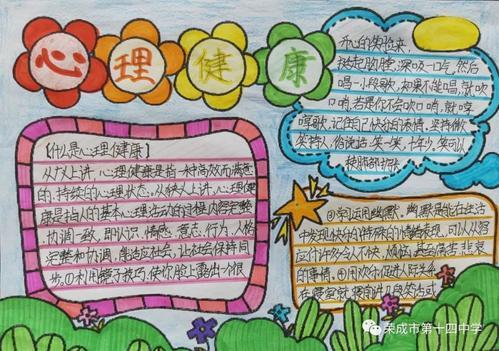 心理健康
【什么是心理健康】
从广义上讲,心理健康是指一种高效而满意
的、持续的心理状态。从狭义上讲,心理健
康是指人的基本心理活动的过程内容完整
协调一致,即认识、情感、意志、行为、人格
完整和协调,能适应社会,让社会保持同
步。①利用镜子技巧,使你脸上露出个很
开心的笑脸来,
挺起胸膛,深吸一口气,然后
唱一小段歌,如果不能唱,就吹
口哨,若是你不会吹口哨,就哼
哼歌,记住自己快乐的表情。坚持微
笑待人,俗说话:笑一笑,十年少,笑可以
使肺部扩张
③学习运用幽默。幽默是能在生活
中发现快乐的特殊的情绪表现,可以从容
应付许多令人不快、烦恼、甚至痛苦、悲哀
的事情。④用欢乐促进人际关系
荣成市第十四中学